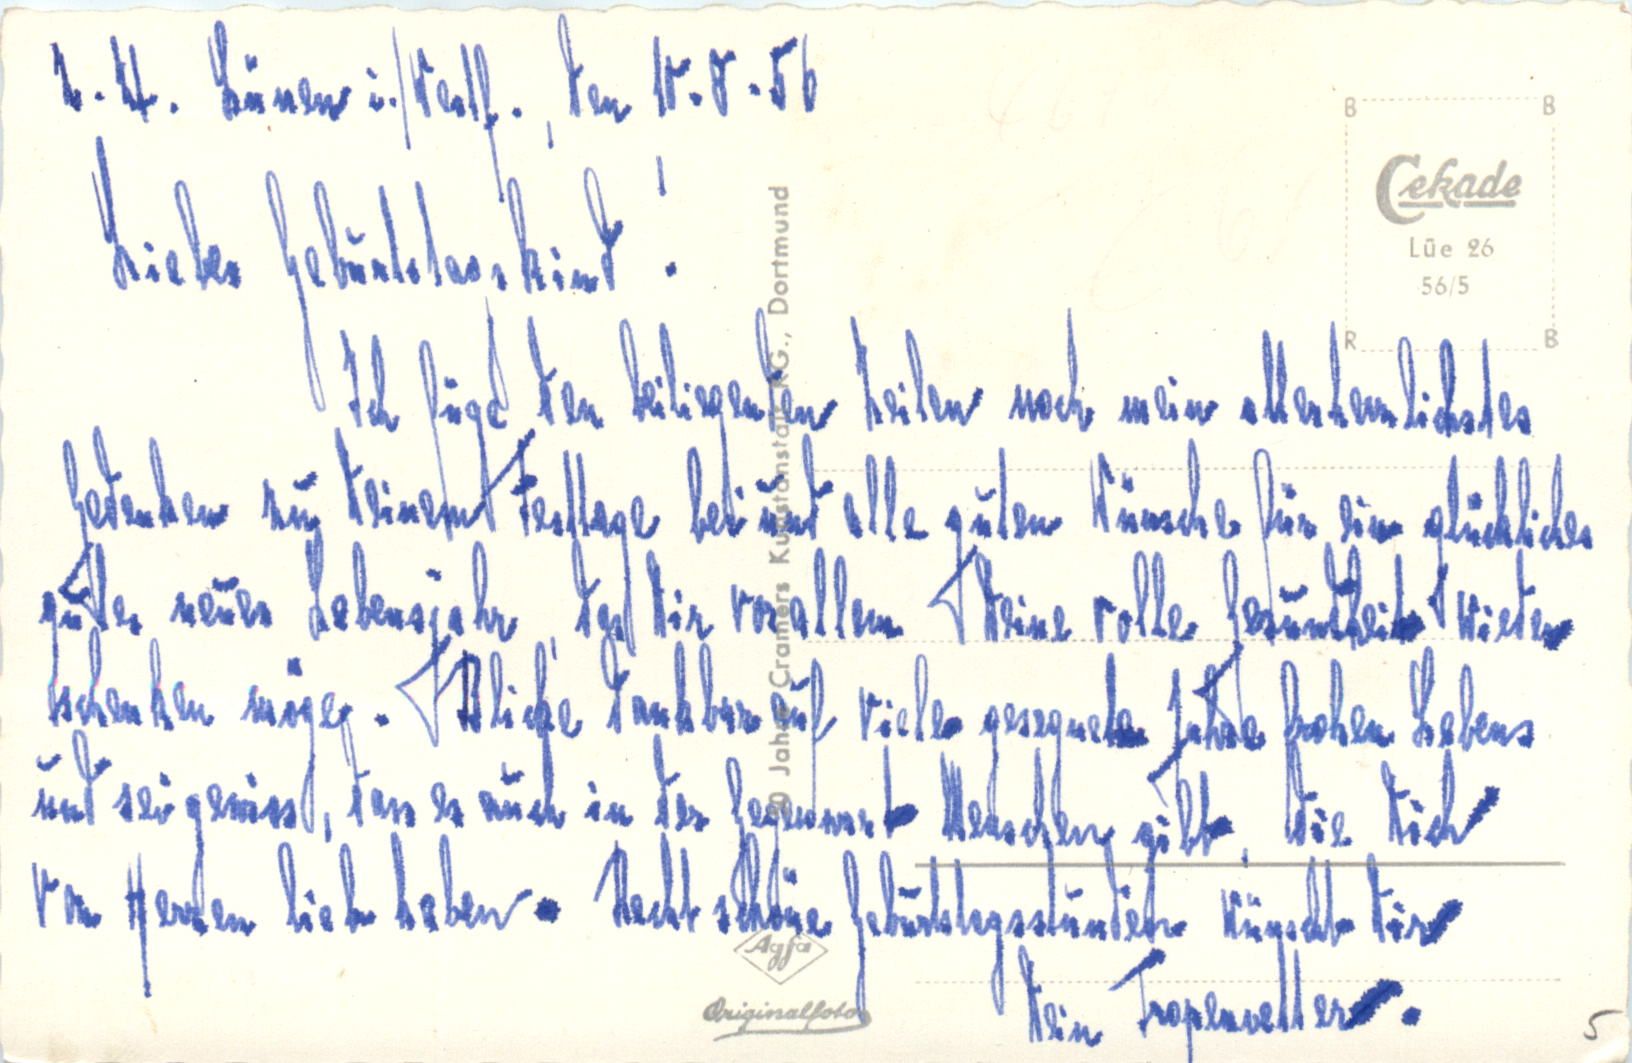 z. Zt. Lünen i./Westf., den 10.8.56
Liebes Geburtstagskind!
Ich füge den beiliegenden Zeilen noch mein allerherzlichstes
Gedenken zu Deinem Festtage bei und alle guten Wünsche für ein glückliches
gutes neues Lebensjahr, das Dir vor allem Deine volle Gesundheit wieder
schenken möge. Blicke dankbar auf viele gesegnete Jahre frohen Lebens
und sei gewiss, dass es auch in der Gegenwart Menschen gibt, die Dich
von Herzen lieb haben. Recht schöne Geburtstagsstunden wünscht Dir
Dein Tropenvetter.
Jahre Cramers Kunstanstalt KG., Dortmund
B B
Cekade
Lüe 26
56/5
R B
Agfa
Originalfoto
5